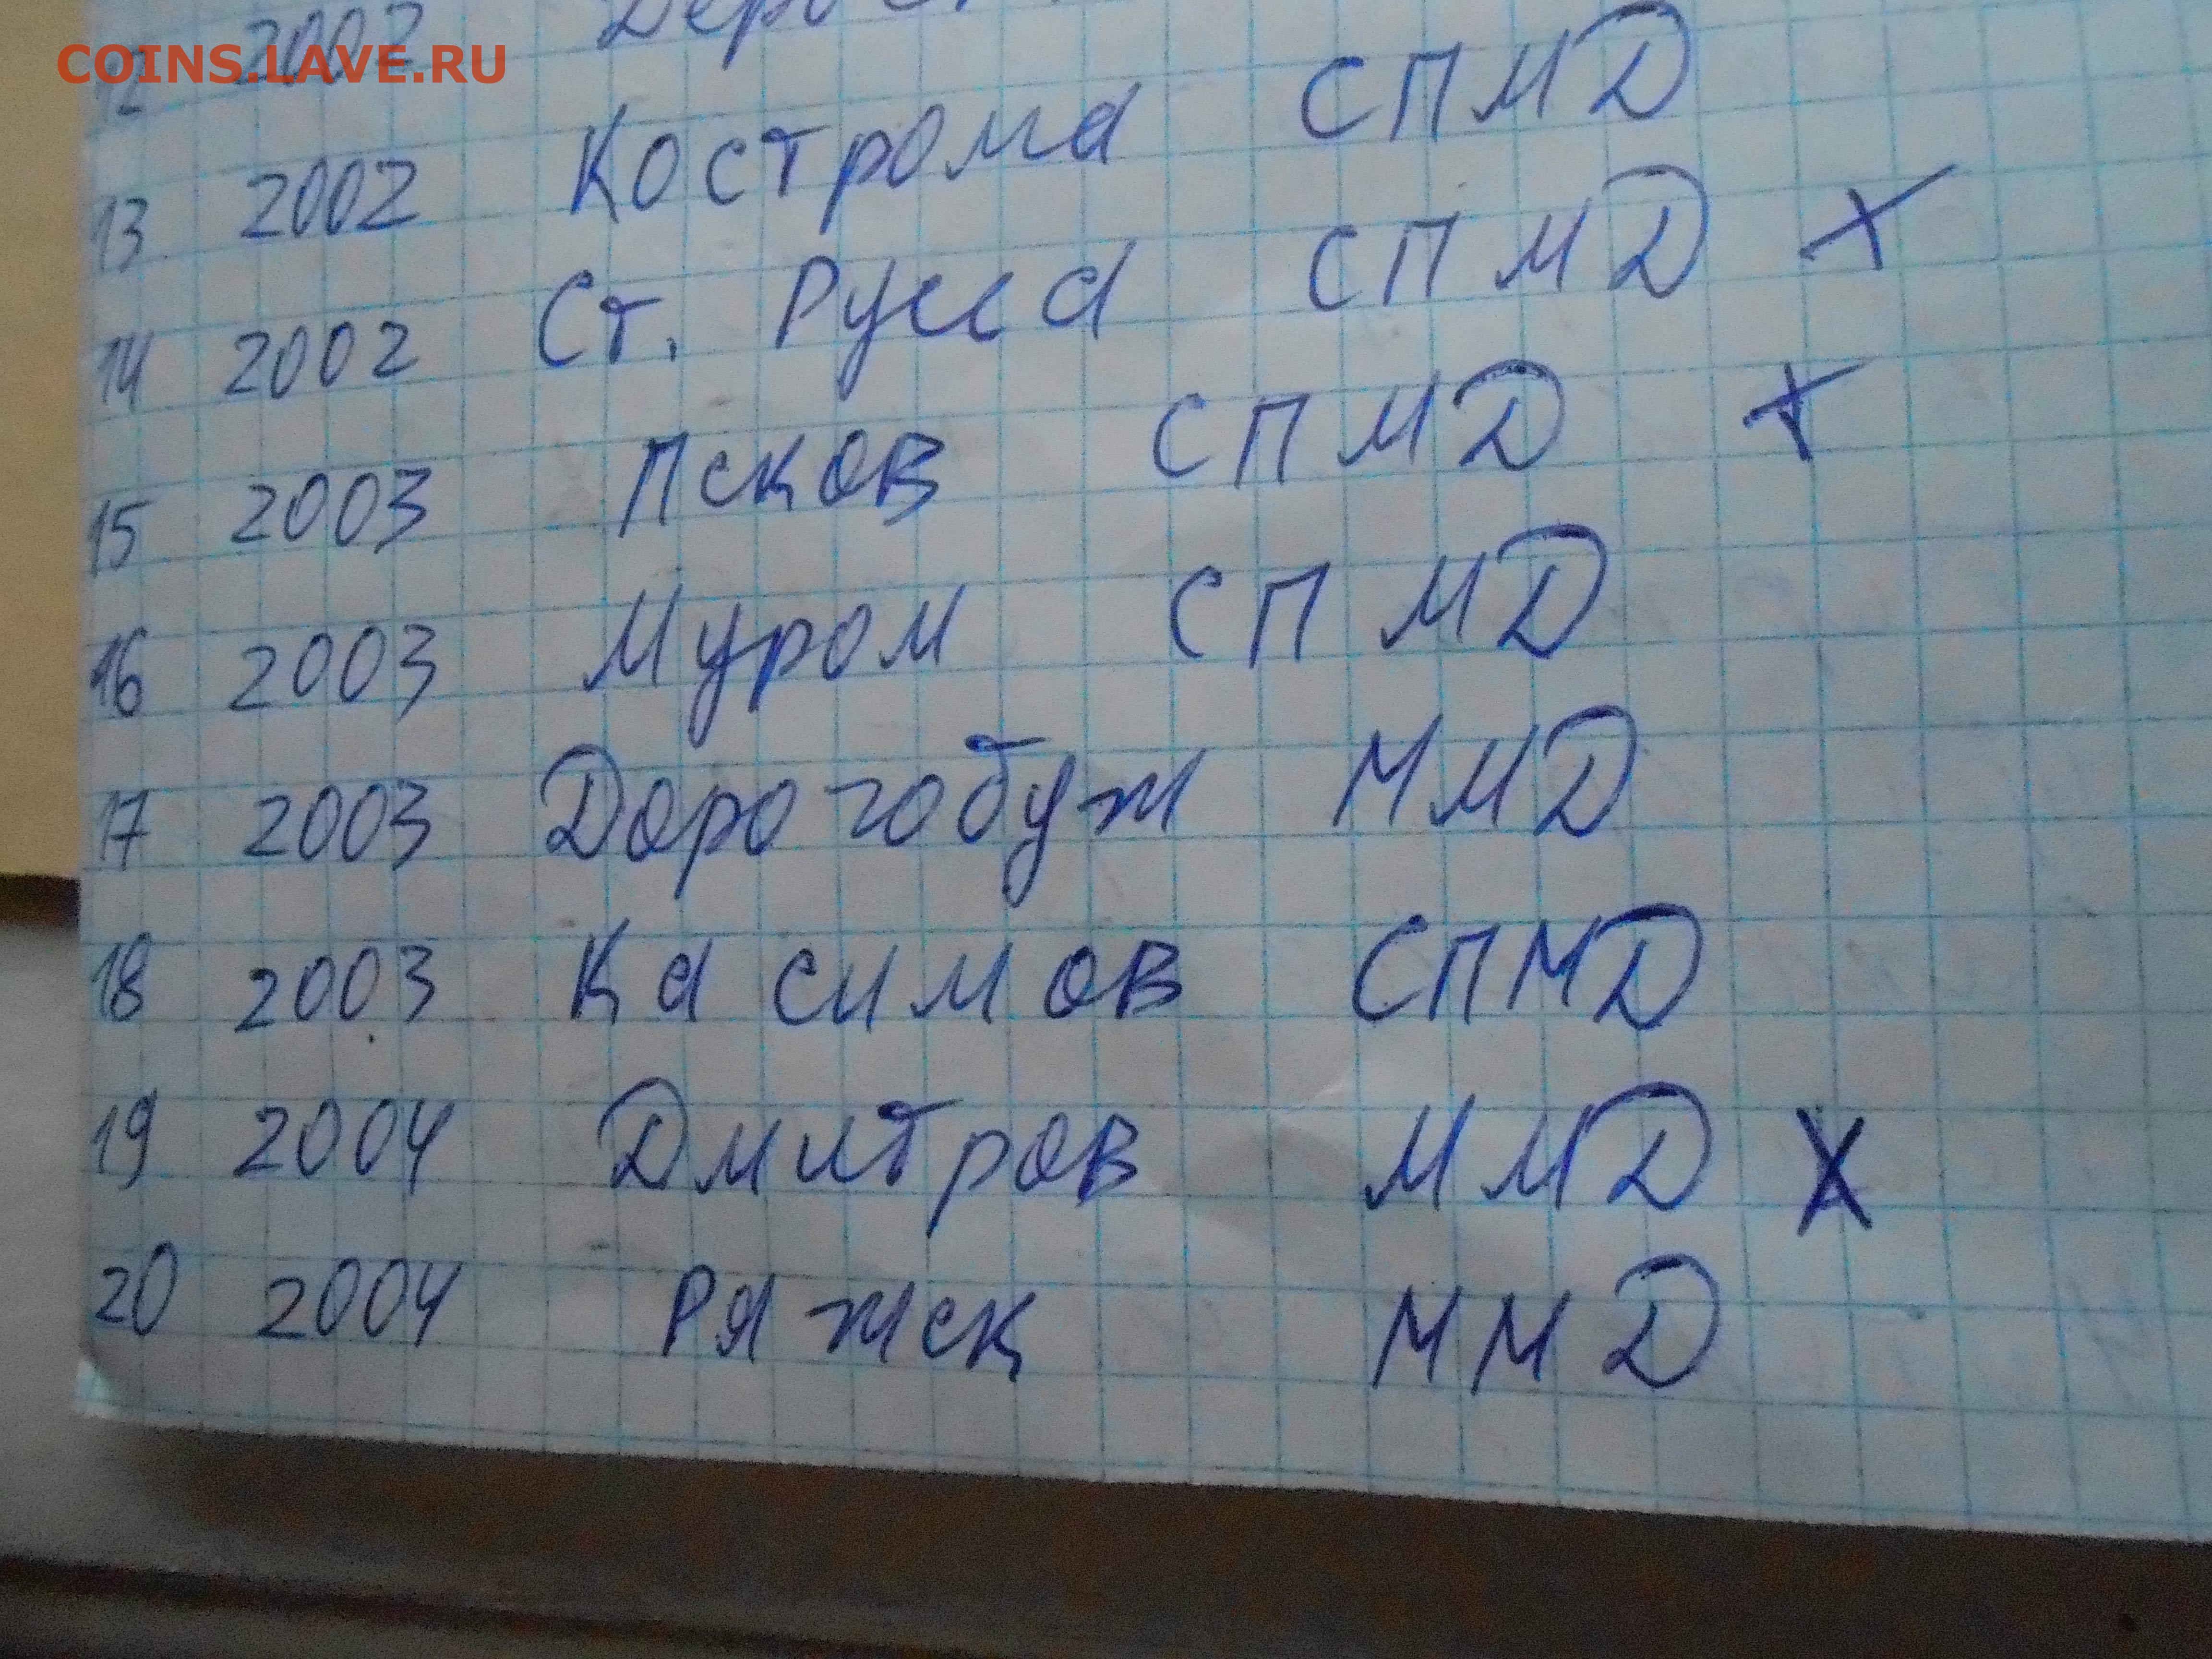 COINS.LAVE.RU
12 2002
13 2002 Кострома СПМД
14 2002 Ст. Русса СПМД X
15 2003 Псков СПМД X
16 2003 Муром СПМД
17 2003 Дорогобуж ММД
18 2003 Касимов СПМД
19 2004 Дмитров ММД X
20 2004 Ряжск ММД